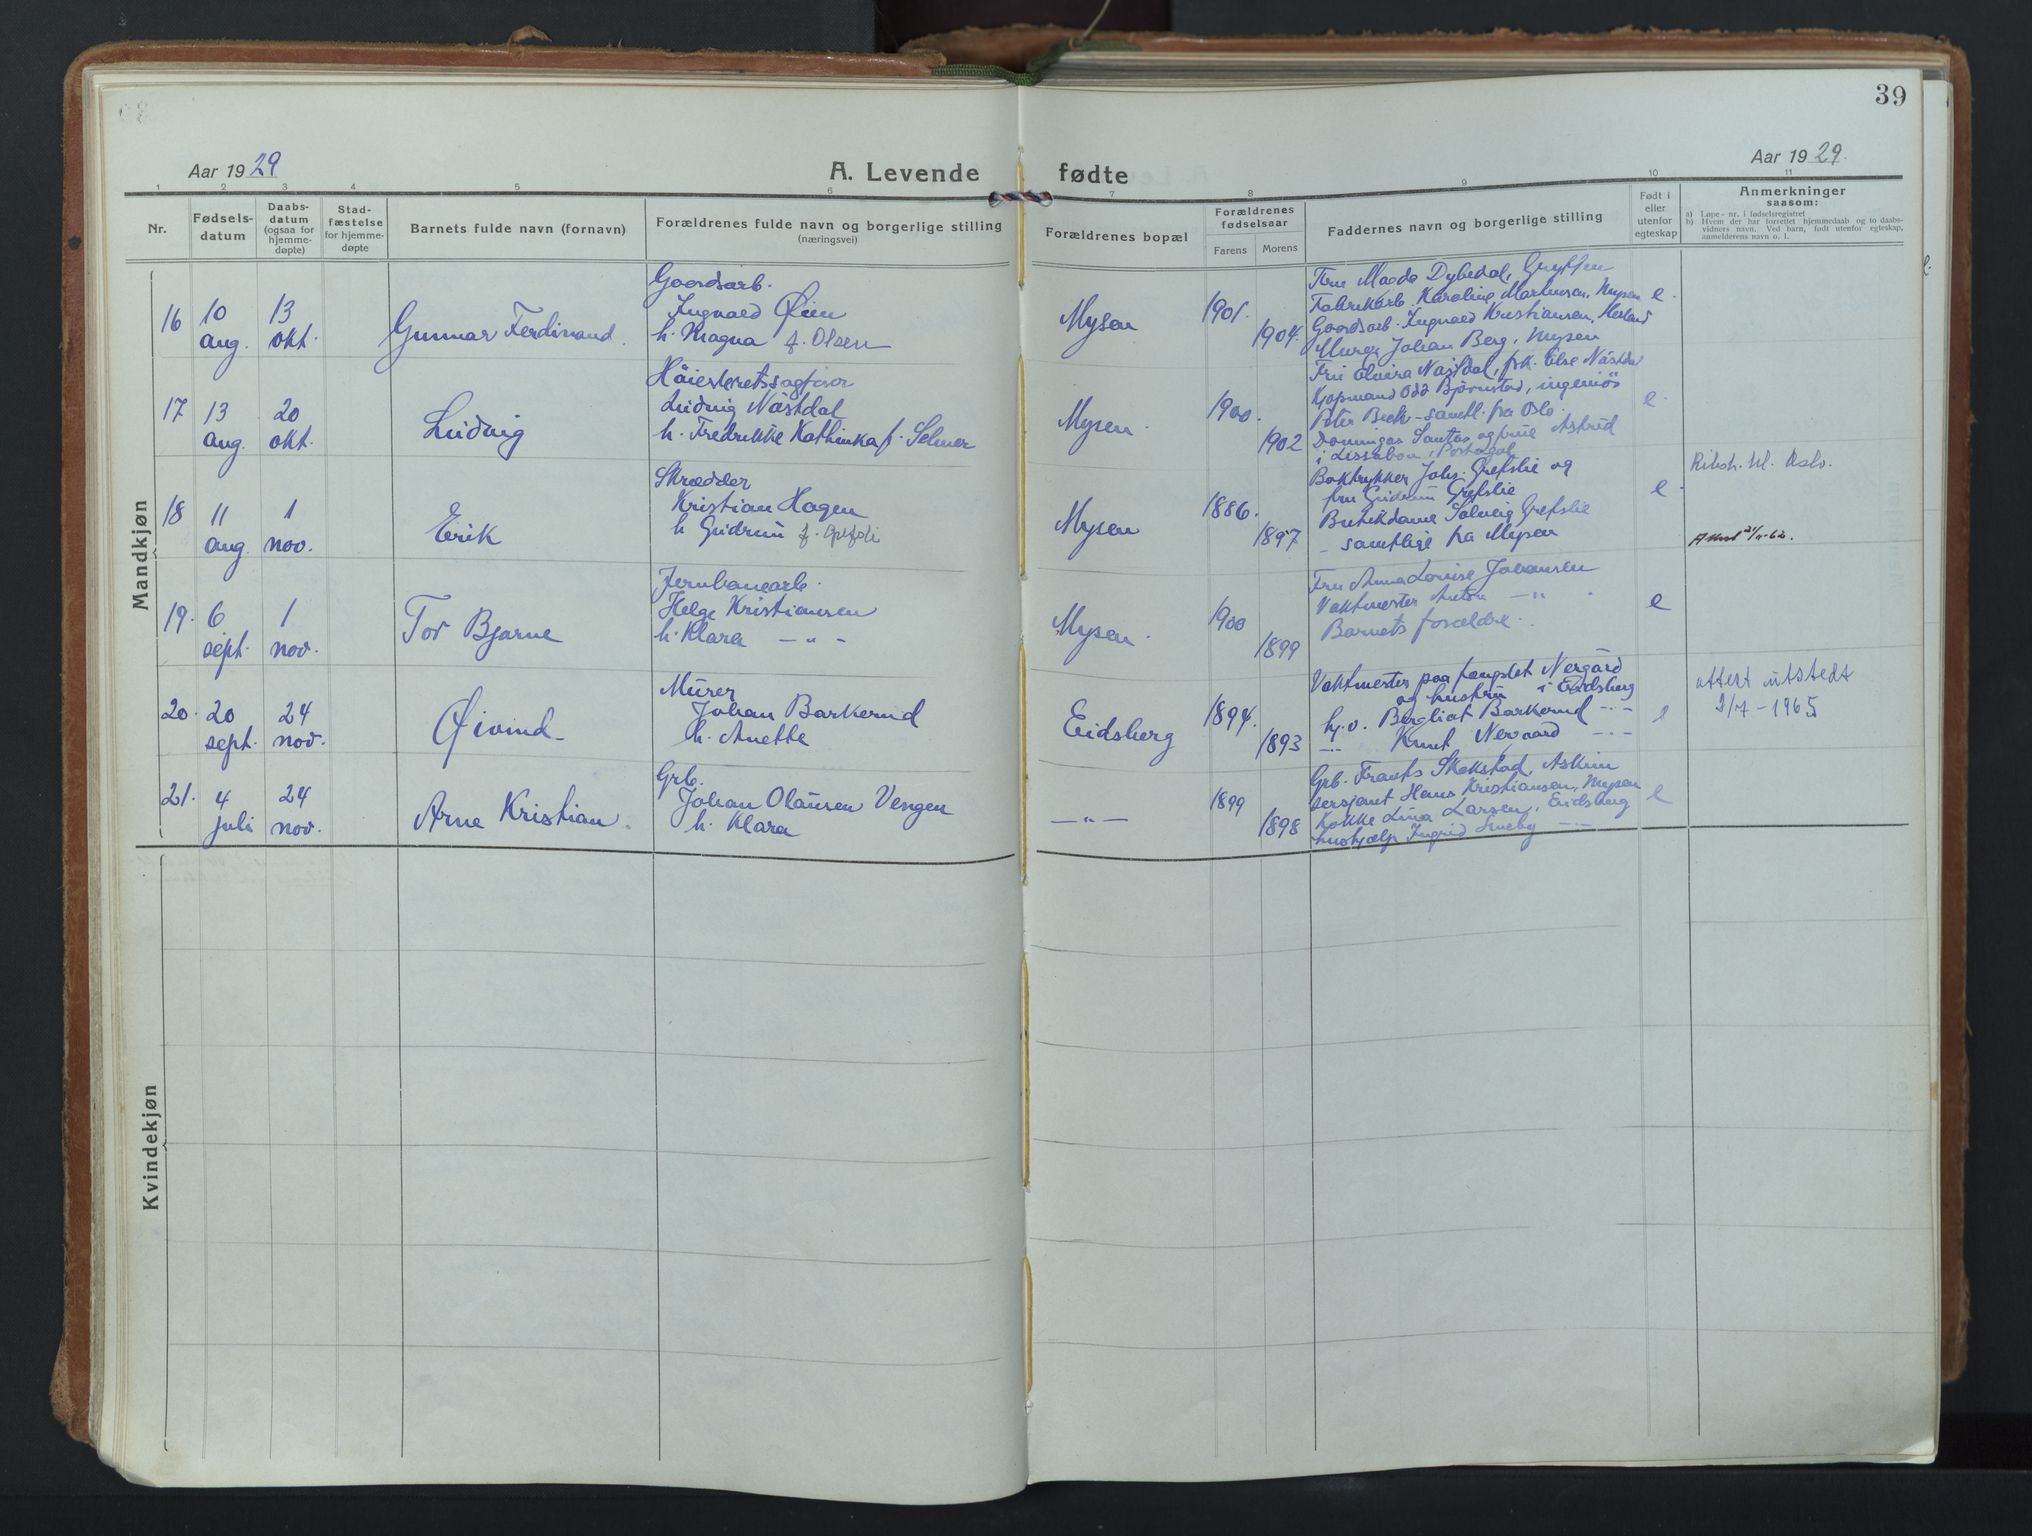 39
Aar 1929
A. Levende fødte
Aar 1929.
1 2 3 4 5 6 7 8 9 10 11
Nr.
Fødsels-
datum
Daabs-
datum
(ogsaa for
hjemme-
døpte)
Stad-
fæstelse
for hjemme-
døpte
Barnets fulde navn (fornavn)
Forældrenes fulde navn og borgerlige stilling
(næringsvei)
Forældrenes bopæl
Forældrenes
fødselsaar
Farens Morens
Faddernes navn og borgerlige stilling
Født i
eller
utenfor
egteskap
Anmerkninger
saasom:
a) Løpe-nr. i fødselsregistret
b) Hvem der har forrettet hjemmedaab og to daabs-
vidners navn. Ved barn, født utenfor egteskap,
anmelderens navn o. l.
Mandkjøn
16
10
aug.
13
okt.
Gunnar Ferdinand.
Goardsarb.
Ingvald Øien
h. Magna f. Olsen
Mysen
1901.
1904.
Fru Magda Dybedal,
Fabrikarb. Karoline Martinsen, Mysen
Goardsarb. Ingvald Kristiansen,
Murer Johan Berg, Mysen
e.
17
13
aug.
20
okt.
Ludvig
Høiesteretssagfører
Ludvig Nästdal
h. Fredrikke Kathinka f. Selmer
Mysen.
1900.
1902
Fru Elvira Nästdal, frk. Else Nästdal
Kjøpmand Odd Bjørnstad, ingeniør
Peter Beck - samtl. fra Oslo.
Domingas Santos og frue Astrid
i Lissabon, Portugal
e.
18
11
aug.
1
nov.
Erik
Skrædder
Kristian Hagen
h Gudrun f. Grefsli
Mysen
1886.
1897
Boktrykker Johs. Grefslie og
fru Gudrun Grefslie
Butikdame Solveig Grefslie
- samtlige fra Mysen
e.
Oslo.
19.
6
sept.
1
nov.
Tor Bjarne
Jernbanearb.
Helge Kristiansen
h. Klara — " —
Mysen.
1900
1899
Fru Anna Lovise Johansen
Vaktmester Anton — " —
Barnets forældre.
e
20.
20
sept.
24
nov.
Øivind
Murer
Johan Barkerud
h. Anette
Eidsberg
1894.
1893
Vaktmester paa fængslet Nergård
og hustru i Eidsberg
hj.v. Bergliot Barkerud — " —
— " — Knut Nergaard — " —
e
attest utstedt
2/7 - 1965
21.
4
juli
24
nov.
Arne Kristian.
Grb.
Johan Olausen Vengen
h. Klara
— " —
1899
1898
Grb. Frants Skakstad, Askim
sersjant Hans Kristiansen, Mysen
Kokke Lina Larsen, Eidsberg
hushjælp Ingrid — " —
e
Kvindekjøn